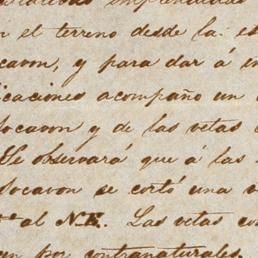 n el terreno desde la es
cavon, y para dar á in
icaciones acompaño un
socavon y de las vetas
Se observará que á las
socavon se cortó una v
al N.E. Las vetas co
un por contranaturales